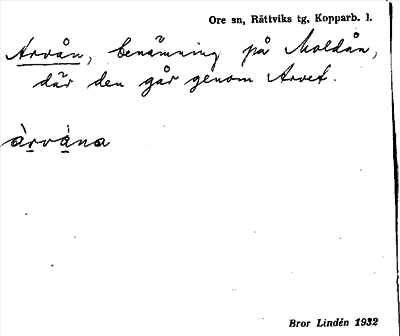 Ore sn, Rättviks tg, Kopparb. l.
Arvån, benämning på Moldån,
där den går genom Arvet.
àrvàna
Bror Lindén 1932